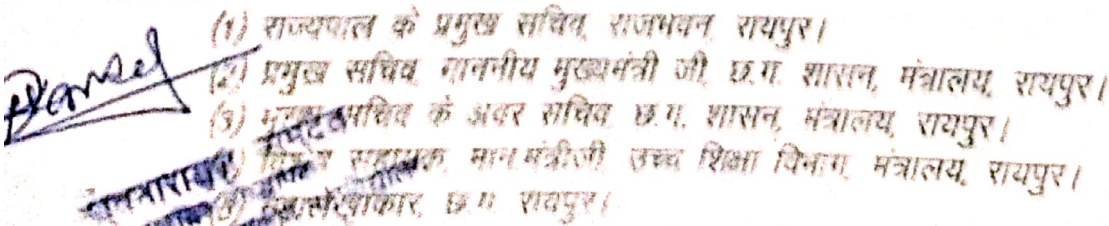 (1) राज्यपाल के प्रमुख सचिव, राजभवन, रायपुर।
(2) प्रमुख सचिव, माननीय मुख्यमंत्री जी, छ.ग. शासन, मंत्रालय, रायपुर।
(3) मुख्य सचिव के अवर सचिव, छ.ग. शासन, मंत्रालय, रायपुर।
सहायक, मान.मंत्रीजी, उच्च शिक्षा विभाग, मंत्रालय, रायपुर।
(5) महालेखाकार, छ.ग. रायपुर।